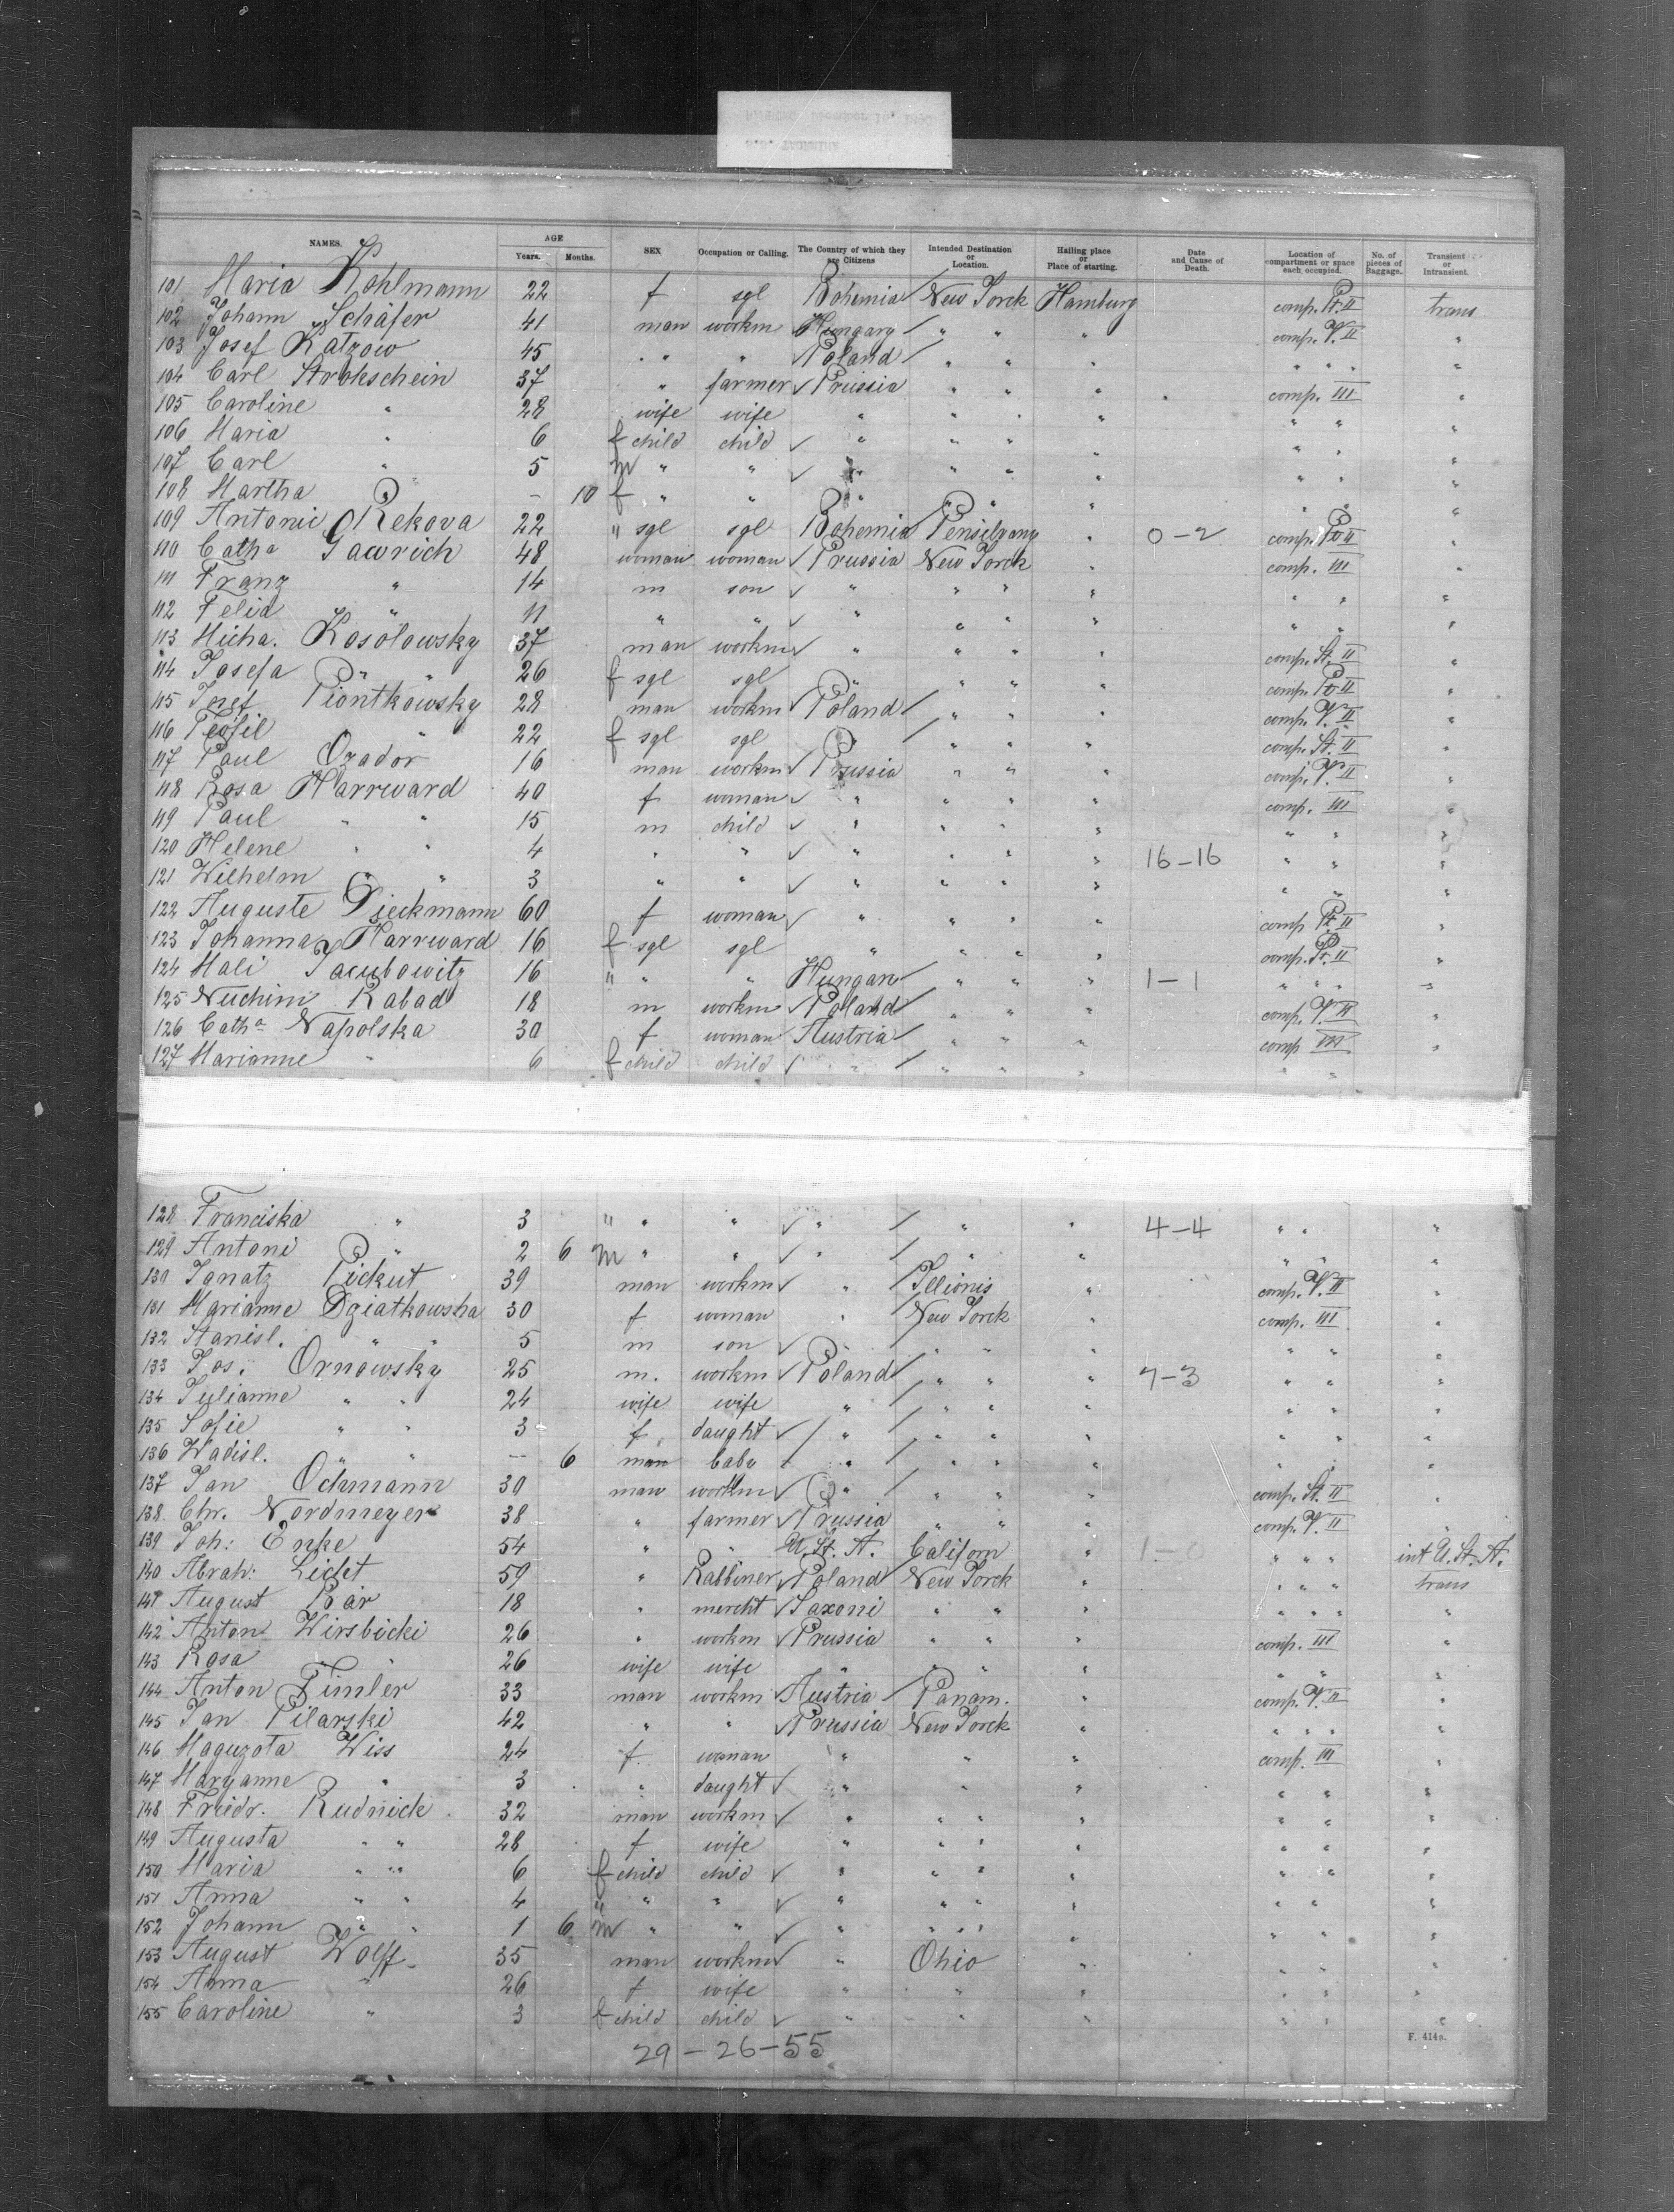 NAMES. AGE Years. Months. SEX Occupation or Calling. The Country of which they are Citizens Intended Destination or Location. Hailing place or Place of starting. Date and Cause of Death. Location of compartment or space each occupied. No. of pieces of Baggage. Transient or Intransient.
101 Maria Kohlmann 22 f sgl Bohemia New Jorck Hamburg comp. Pt. II trans
102 Johann Schäfer 41 man workm Hungary " " " comp. V. II "
103 Josef Katzow 45 " " " Poland " " " " " " "
104 Carl Strohschein 37 " farmer Prussia " " " comp. III "
105 Caroline " 28 wife wife " " " " " " "
106 Maria " 6 f child child " " " " " " "
107 Carl " 5 m " " " " " " " " "
108 Martha " – 10 f " " " " " " " " "
109 Antonie Rekova 22 " sgl sgl Bohemia Pensilvany " 0–2 comp. Pt II "
110 Catha Gawrich 48 woman woman Prussia New Jorck " comp. III "
111 Franz " 14 m son " " " " " " "
112 Felia " 11 " " " " " " " " "
113 Micha. Kosolowsky 37 man workm " " " " comp. St. II "
114 Josefa " " 26 f sgl sgl " " " " comp. Pt II "
115 Josef Piontkowsky 28 man workm Poland " " " comp. V. II "
116 Teofil " 22 f sgl sgl " " " " comp. St. II "
117 Paul Ozador 16 man workm Prussia " " " comp. V. II "
118 Rosa Harrward 40 f woman " " " " comp. III "
119 Paul " " 15 m child " " " " " " "
120 Helene " " 4 " " " " " " 16–16 " " "
121 Wilhelm " " 3 " " " " " " " " "
122 Auguste Dieckmann 60 f woman " " " " comp Pt. II "
123 Johanna Harrward 16 f sgl sgl " " " " comp. Pt. II "
124 Mali Jacubowitz 16 " " " Hungan " " " 1–1 " " " "
125 Nuchim Rabad 18 m workm Poland " " " comp. V. II "
126 Catha Napolska 30 f woman Austria " " " comp III "
127 Marianne " 6 f child child " " " " " "
128 Franciska " 3 " " " " " " 4–4 " " "
129 Antoni " 2 6 m " " " " " " " "
130 Ignatz Pickut 39 man workm " Illionis " comp. V. II "
131 Marianne Dziatkowska 30 f woman " New Jorck " comp. III "
132 Stanisl. " " 5 m son " " " " " " "
133 Jos. Ornowsky 25 m. workm Poland " " " 7–3 " " "
134 Julianne " " 24 wife wife " " " " " " "
135 Sofie " " 3 f. daught " " " " " " "
136 Wadisl. " " – 6 man baby " " " " " " "
137 Jan Ochmann 30 man workm " " " " comp. St. II "
138. Chr. Nordmeyer 38 " farmer Prussia " " " comp. V. II "
139 Joh: Enke 54 " " U. St. A. Californ " " " " int U. St. A.
140 Abrah: Licht 59 " Rabbiner Poland New Jorck " " " " trans
141 August Bär 18 " mercht Saxoni " " " " " " "
142 Anton Wirsbicki 26 " workm Prussia " " " comp. III "
143 Rosa " " 26 wife wife " " " " " " "
144 Anton Fimler 33 man workm Austria Panam. " comp. V. II "
145 Jan Pilarski 42 " " Prussia New Jorck " " " " "
146 Maguzota Wiss 24 f. woman " " " comp. III "
147 Maryanne " 3 " daught " " " " " "
148 Friedr. Rudnick 32 man workm " " " " " " "
149 Augusta " " 28 f wife " " " " " " "
150 Maria " " 6 f child child " " " " " " "
151 Anna " " 4 " " " " " " " " " "
152 Johann " " 1 6 m " " " " " " " " "
153 August Wolff 35 man workm " Ohio " " " "
154 Anna " 26 f wife " " " " " "
155 Caroline " 3 f child child " " " " " "
29–26–55
F. 414a.